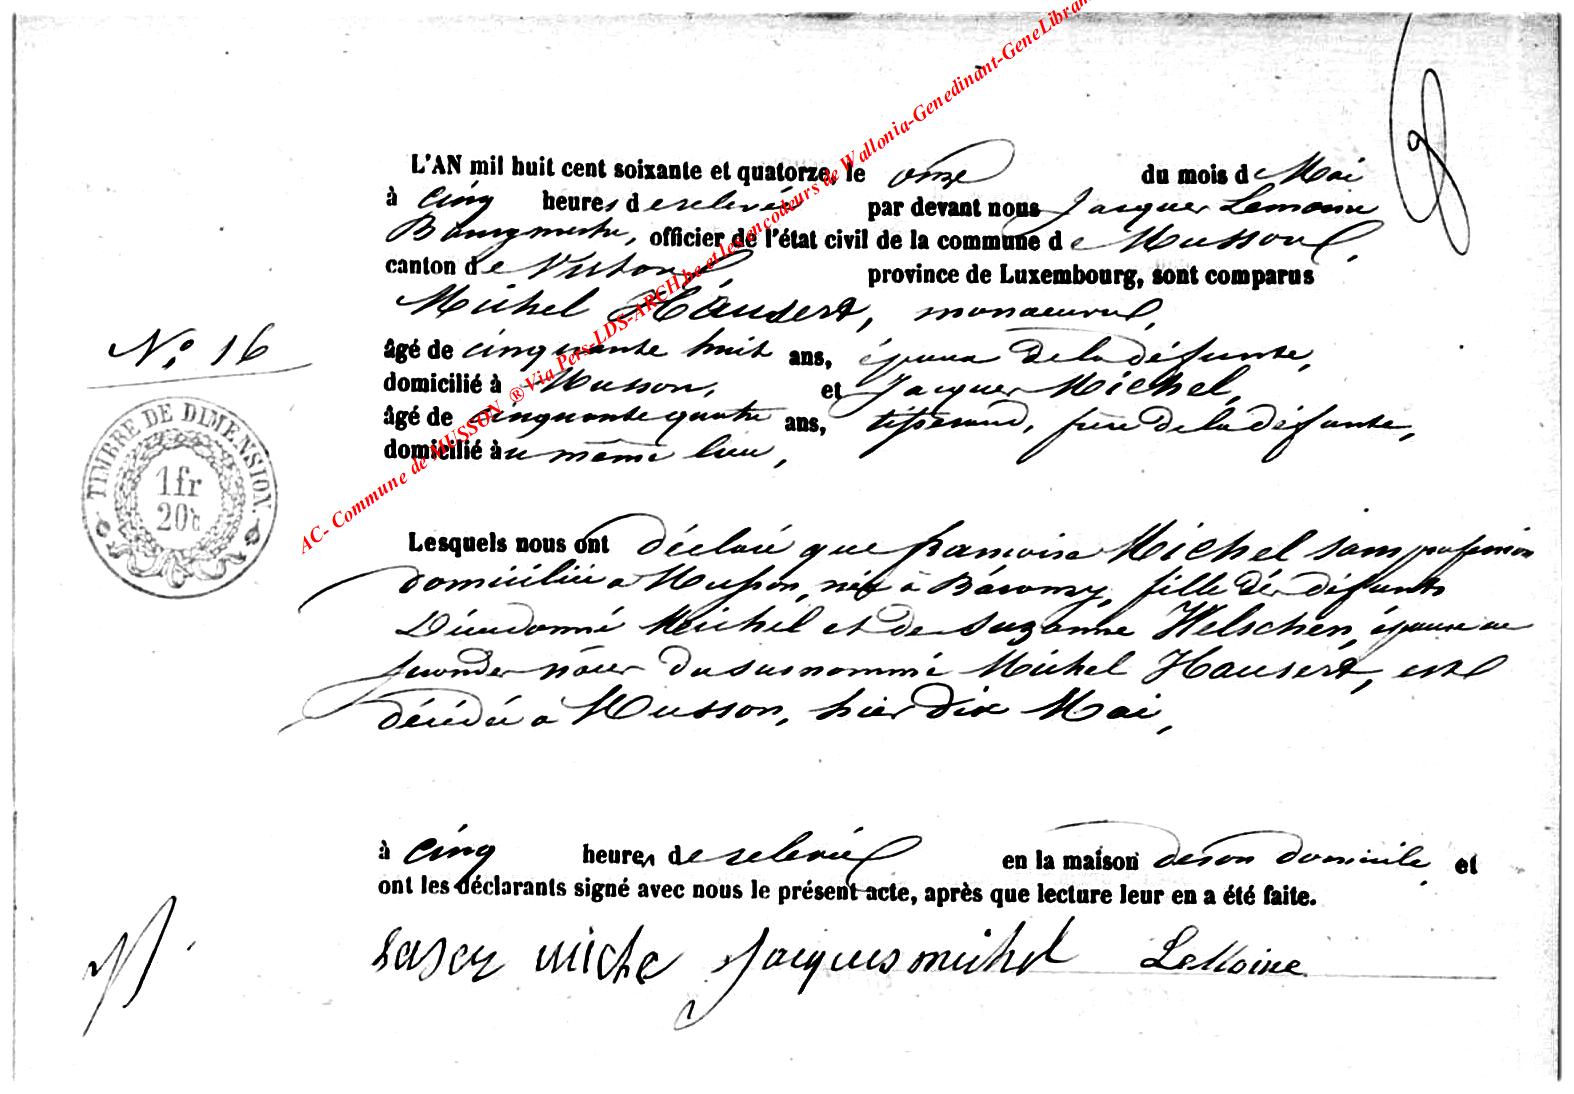 L'AN mil huit cent soixante et quatorze, le onze du mois de Mai
à cinq heures de relevée par devant nous Jacques Lemoine
Bourgmestre, officier de l'état civil de la commune de Musson,
canton de Virton, province de Luxembourg, sont comparus
Michel Hausert, manoeuvre,
N° 16
âgé de cinquante huit ans, époux de la défunte,
domicilié à Musson, et Jacques Michel,
âgé de cinquante quatre ans, tisserand, frère de la défunte,
domicilié au même lieu,
TIMBRE DE DIMENSION.
1 fr
20c
Lesquels nous ont déclaré que francoise Michel sans profession
domiciliée à Musson, née à Baromzy, fille des défunts
Dieudonné Michel et de Suzanne Welschen, épouse en
secondes nôces du susnommé Michel Hausert, est
décédée à Musson, hier dix Mai,
à cinq heures de relevée en la maison de son domicile, et
ont les déclarants signé avec nous le présent acte, après que lecture leur en a été faite.
miche Jacques michel LeMoine
AC- Commune de MUSSON ® Via Pers-LDS-ARCH.be et les encodeurs de Wallonia-Genedinant-GeneLibran